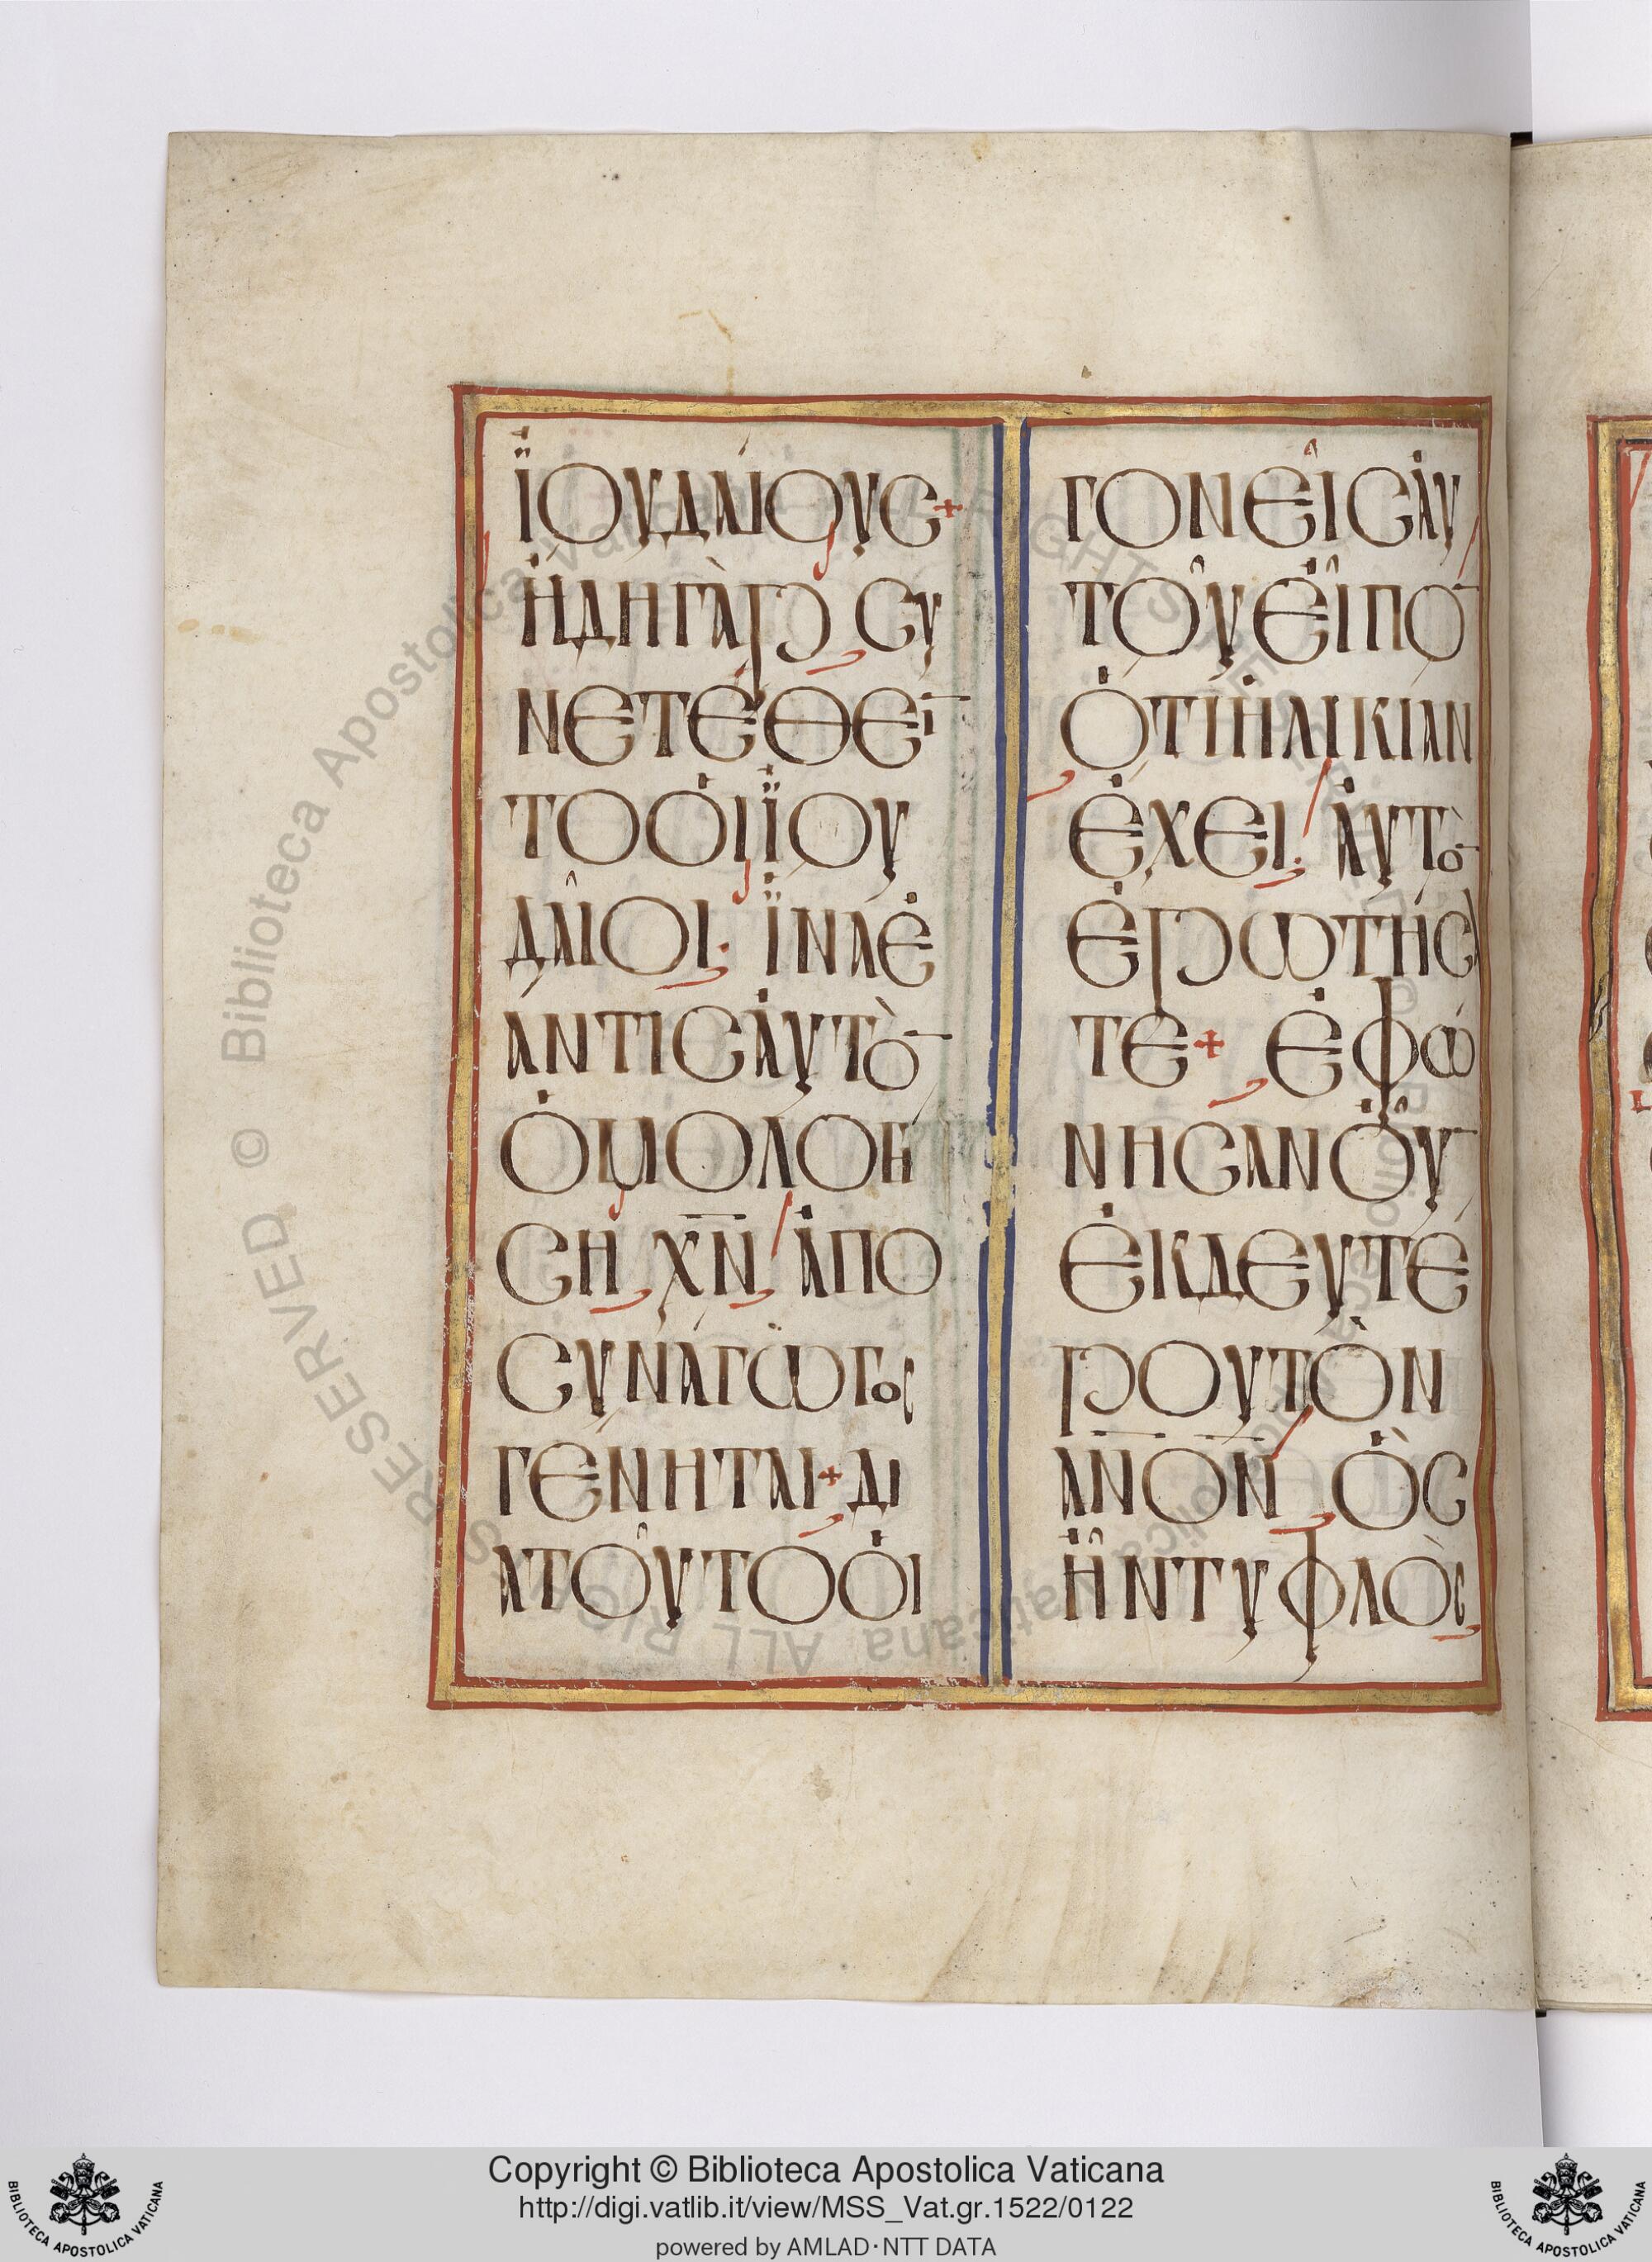 ἸΟΥΔΑΊΟΥC+
ἬΔΗ ΓᾺΡ CΥ
ΝΕΤΈΘΕΙ̅
ΤΟ ΟἹ ἸΟΥ
ΔΑΙ͂ΟΙ. ἽΝΑ Ἐ
ΆΝ ΤΙC ἈΥΤῸ̅
ὉΜΟΛΟΓΉ
CΗ Χ̅Ν̅ ἈΠΟ
CΥΝΆΓΩΓΟC
ΓΈΝΗΤΑΙ+ ΔΙ
Α ΤΟΥ͂ΤΟ ΟἹ
ΓΟΝΕΙ͂C ἈΥ
ΤΟΥ͂ ΕἾΠΟ̅
ὍΤΙ ἩΛΙΚΊΑΝ
ἘΧΕΙ. ἈΥΤῸ̅
ἘΡΩΤΉCΑ
ΤΕ+ ἘΦΏ
ΝΗCΑΝ ΟΥ̓͂̅
ἘΚ ΔΕΥΤΈ
ΡΟΥ ΤῸΝ
Α̅Ν̅Ο̅Ν̅ ὋC
ἮΝ ΤΥΦΛῸC
© Biblioteca Apostolica Vaticana ALL RIGHTS RESERVED
Copyright © Biblioteca Apostolica Vaticana
http://digi.vatlib.it/view/MSS_Vat.gr.1522/0122
powered by AMLAD·NTT DATA
BIBLIOTECA APOSTOLICA VATICANA
BIBLIOTECA APOSTOLICA VATICANA